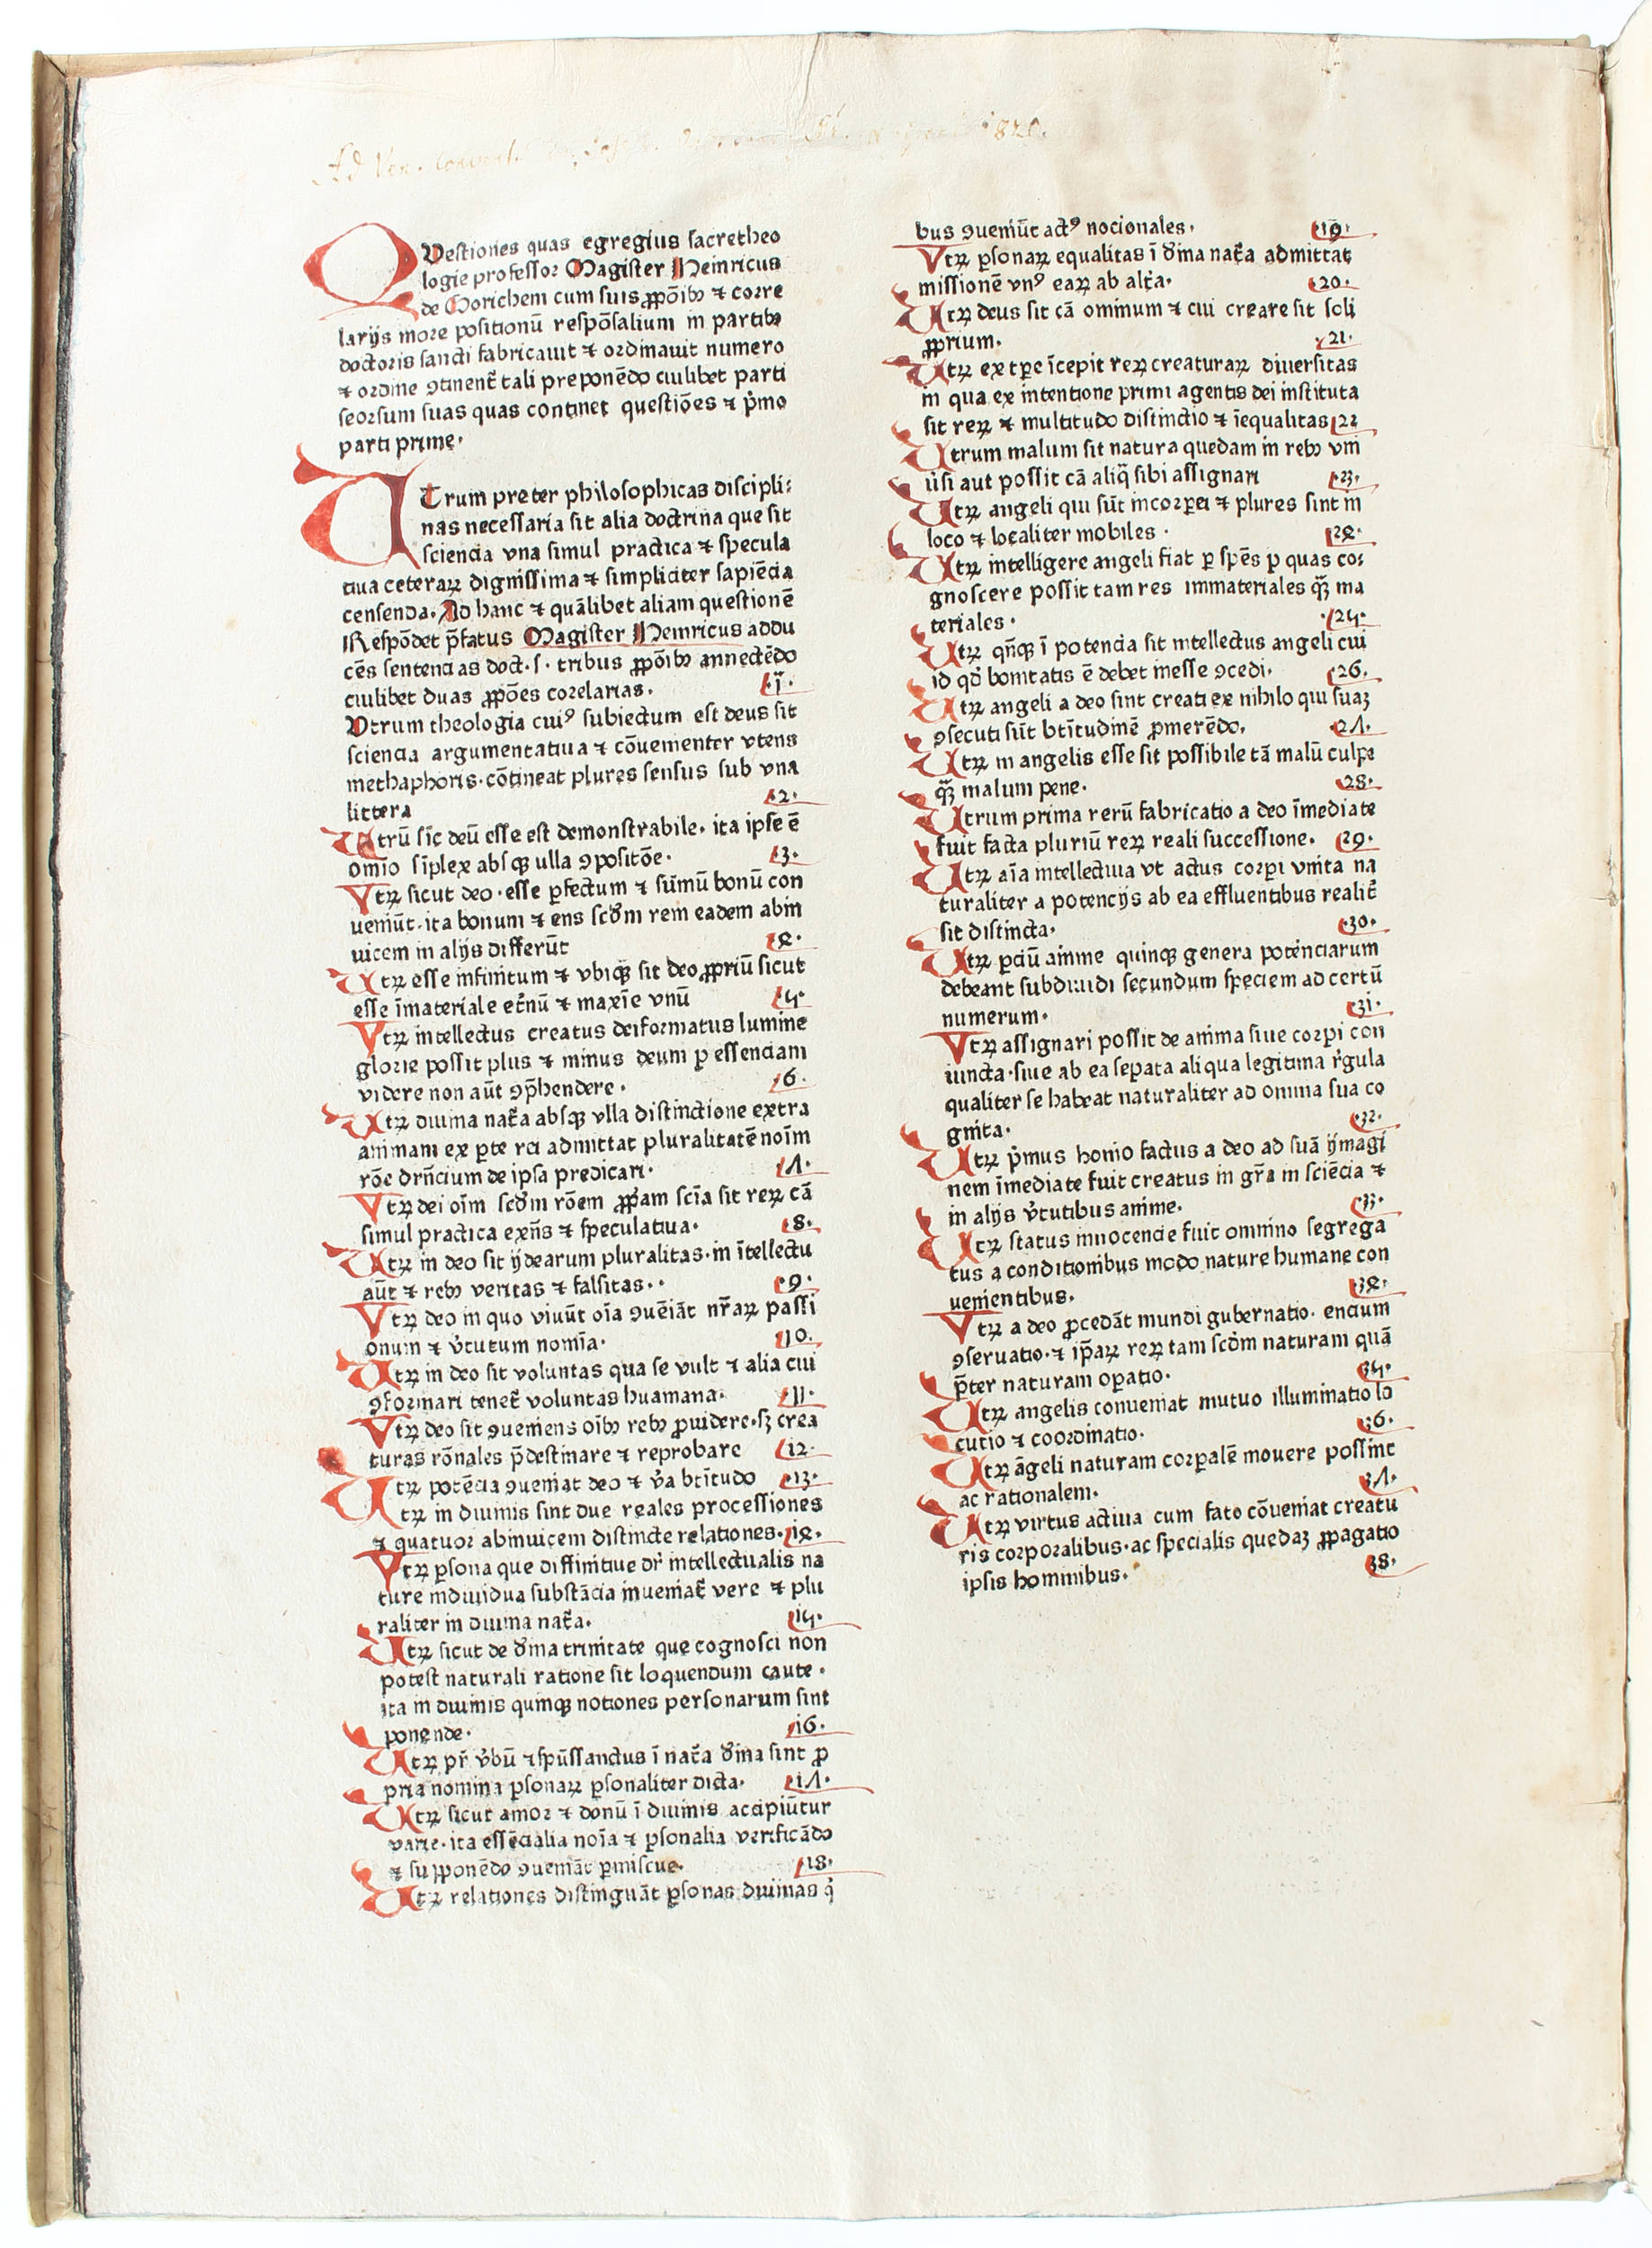 Ad Ven. convent. 1820.
QVestiones quas egregius sacretheo
logie professor Magister Heinricus
de Gorichem cum suis ꝓpõibꝫ ⁊ corre
larijs more positionũ respõsalium in partibꝫ
doctoris sancti fabricauit ⁊ ordinauit numero
⁊ ordine ꝯtinent̃ tali preponẽdo cuilibet parti
seorsum suas quas continet questiões ⁊ p̓mo
parti prime.
UTrum preter philosophicas discipli⸗
nas necessaria sit alia doctrina que sit
sciencia vna simul practica ⁊ specula
tiua ceteraꝝ dignissima ⁊ simpliciter sapiẽcia
censenda. Ad hanc ⁊ quãlibet aliam questionẽ
Respõdet p̃fatus Magister Heinricus addu
cẽs sentencias doct. s. tribus ꝓpõibꝫ annectẽdo
cuilibet duas ꝓpões corelarias. .1.
Vtrum theologia cuiꝰ subiectum est deus sit
sciencia argumentatiua ⁊ cõuenienter vtens
methaphoris. cõtineat plures sensus sub vna
littera .2.
Utrũ sic̃ deũ esse est demonstrabile. ita ipse ẽ
omĩo sĩplex absqꝫ ulla ꝯpositõe. .3.
Vtꝝ sicut deo. esse ꝑfectum ⁊ sũmũ bonũ con
ueniũt. ita bonum ⁊ ens scd̃m rem eadem abin
uicem in alijs differũt .4.
Utꝝ esse infinitum ⁊ vbiqꝫ sit deo ꝓpriũ sicut
esse ĩmateriale et̃nũ ⁊ maxĩe vnũ .5.
Vtꝝ intellectus creatus deiformatus lumine
glorie possit plus ⁊ minus deum ꝑ essenciam
videre non aũt ꝯp̃hendere. .6.
Utꝝ diuina nat̃a absqꝫ vlla distinctione extra
animam ex ꝑte rei admittat pluralitatẽ noĩm
rõe drñcium de ipsa predicari. .7.
Vtꝝ dei oĩm scd̃m rõem ꝓpam scĩa sit reꝝ cã
simul practica exñs ⁊ speculatiua. .8.
Utꝝ in deo sit ydearum pluralitas. in ĩtellectu
aũt ⁊ rebꝫ veritas ⁊ falsitas.. .9.
Vtꝝ deo in quo viuũt oĩa ꝯuẽiãt nr̃aꝝ passi
onum ⁊ v̓tutum nomĩa. .10.
Utꝝ in deo sit voluntas qua se vult ⁊ alia cui
ꝯformari tenet̃ voluntas huamana. .11.
Vtꝝ deo sit ꝯueniens oĩbꝫ rebꝫ ꝓuidere. sꝫ crea
turas rõnales p̃destinare ⁊ reprobare .12.
Utꝝ potẽcia ꝯueniat deo ⁊ v̓a btĩtudo .13.
Utꝝ in diuinis sint due reales processiones
⁊ quatuor abinuicem distincte relationes. .14.
Vtꝝ ꝑsona que diffinitiue dr̃ intellectualis na
ture indiuidua substãcia inueniat̃ vere ⁊ plu
raliter in diuina nat̃a. .15.
Utꝝ sicut de d̓ina trinitate que cognosci non
potest naturali ratione sit loquendum caute.
ita in diuinis quinqꝫ notiones personarum sint
ponende. .16.
Utꝝ pr̃ v̓bũ ⁊ spũssanctus ĩ nat̃a d̓ina sint ꝓ
pria nomina ꝑsonaꝝ ꝑsonaliter dicta. .17.
Utꝝ sicut amor ⁊ donũ ĩ diuinis accipiũtur
varie. ita essẽcialia noĩa ⁊ ꝑsonalia verificãdo
⁊ supponẽdo ꝯueniãt ꝑmiscue. .18.
Utꝝ relationes distinguãt ꝑsonas diuinas q̓
bus ꝯueniũt actꝰ nocionales. .19.
Vtꝝ ꝑsonaꝝ equalitas ĩ d̓ina nat̃a admittat
missionẽ vnꝰ eaꝝ ab alt̃a. .20.
Utꝝ deus sit cã omnium ⁊ cui creare sit soli
ꝓprium. .21.
Utꝝ ex tꝑe ĩcepit reꝝ creaturaꝝ diuersitas
in qua ex intentione primi agentis dei instituta
sit reꝝ ⁊ multitudo distinctio ⁊ ĩequalitas .22
Utrum malum sit natura quedam in rebꝫ vni
u̓si aut possit cã aliq̃ sibi assignari .23.
Utꝝ angeli qui sũt incorꝑei ⁊ plures sint in
loco ⁊ localiter mobiles. .24.
Utꝝ intelligere angeli fiat ꝑ spẽs ꝑ quas co⸗
gnoscere possit tam res immateriales q̃ꝫ ma
teriales. .25.
Utꝝ qñqꝫ ĩ potencia sit intellectus angeli cui
id qd̓ bonitatis ẽ debet inesse ꝯcedi. .26.
Utꝝ angeli a deo sint creati ex nihilo qui suaꝫ
ꝯsecuti sũt btĩtudinẽ ꝓmerẽdo. .27.
Utꝝ in angelis esse sit possibile tã malũ culpe
q̃ꝫ malum pene. .28.
Utrum prima rerũ fabricatio a deo ĩmediate
fuit facta pluriũ reꝝ reali successione. .29.
Utꝝ aĩa intellectiua vt actus corꝑi vnita na
turaliter a potencijs ab ea effluentibus realit̃
sit distincta. .30.
Utꝝ ꝑciũ anime quinqꝫ genera potenciarum
debeant subdiuidi secundum speciem ad certũ
numerum. .31.
Vtꝝ assignari possit de anima siue corꝑi con
iuncta. siue ab ea seꝑata aliqua legitima r̓gula
qualiter se habeat naturaliter ad omnia sua co
gnita. .32.
Utꝝ p̓mus homo factus a deo ad suã ymagi
nem ĩmediate fuit creatus in gr̃a in sciẽcia ⁊
in alijs v̓tutibus anime. .33.
Utꝝ status innocencie fuit omnino segrega
tus a conditionibus modo nature humane con
uenientibus. .34.
Vtꝝ a deo ꝓcedãt mundi gubernatio. encium
ꝯseruatio. ⁊ ip̃aꝝ reꝝ tam scd̓m naturam quã
p̃ter naturam oꝑatio. .35.
Utꝝ angelis conueniat mutuo illuminatio lo
cutio ⁊ coordinatio. .36.
Utꝝ ãgeli naturam corꝑalẽ mouere possint
ac rationalem. .37.
Utꝝ virtus actiua cum fato cõueniat creatu
ris corporalibus. ac specialis quedaꝫ ꝓpagatio
ipsis hominibus. .38.